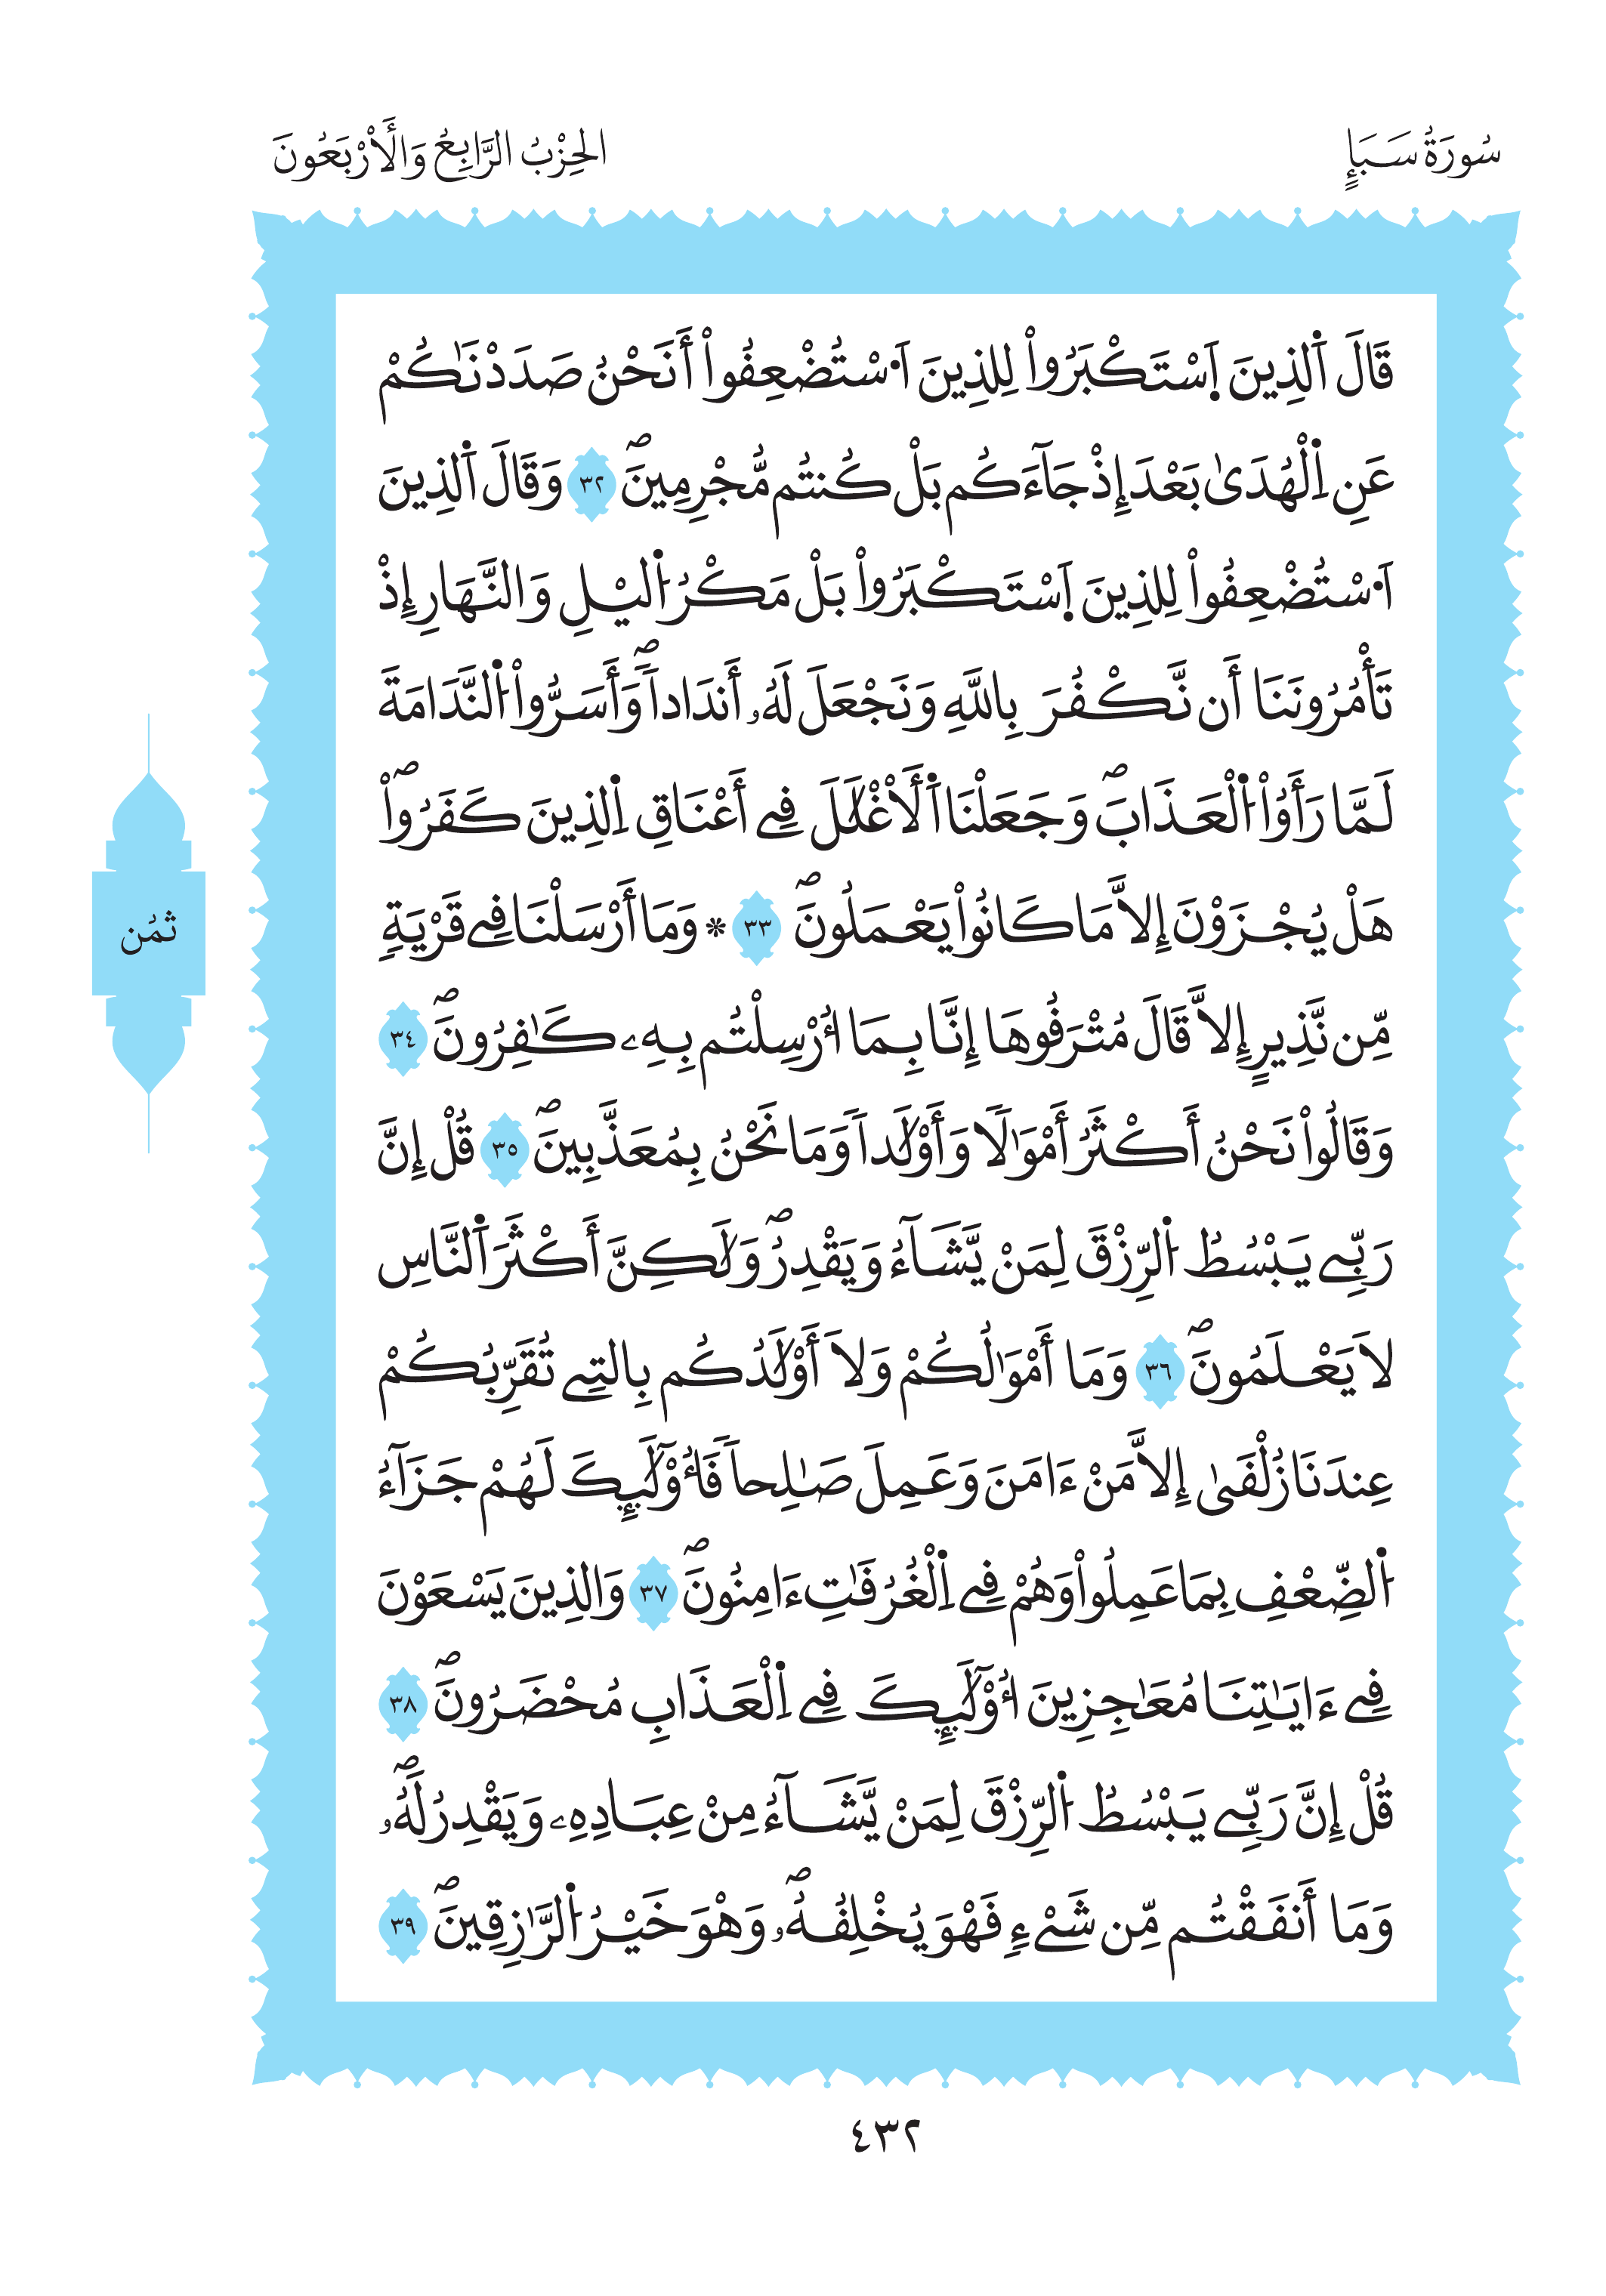 سُورَةُ سَبَإٍ
الحِزْبُ الرَّابِعُ وَالْأَرْبَعُونَ
قَالَ اَ۬لذِينَ اَ۪سْتَكْبَرُواْ لِلذِينَ اَ۟سْتُضْعِفُواْ أَنَحْنُ صَدَدْنَٰكُمْ
عَنِ اِ۬لْهُدَىٰ بَعْدَ إِذْ جَآءَكُم بَلْ كُنتُم مُّجْرِمِينَۖ ٣٢ وَقَالَ اَ۬لذِينَ
اَ۟سْتُضْعِفُواْ لِلذِينَ اَ۪سْتَكْبَرُواْ بَلْ مَكْرُ اُ۬ليْلِ وَالنَّهَارِ إِذْ
تَأْمُرُونَنَا أَن نَّكْفُرَ بِاللَّهِ وَنَجْعَلَ لَهُۥ أَندَاداَۖ وَأَسَرُّواْ اُ۬لنَّدَامَةَ
لَمَّا رَأَوُاْ اُ۬لْعَذَابَۖ وَجَعَلْنَا اَ۬لْأَغْلَٰلَ فِے أَعْنَاقِ اِ۬لذِينَ كَفَرُواْۖ
هَلْ يُجْزَوْنَ إِلاَّ مَا كَانُواْ يَعْمَلُونَۖ ٣٣ * وَمَا أَرْسَلْنَا فِے قَرْيَةٖ
مِّن نَّذِيرٍ إِلاَّ قَالَ مُتْرَفُوهَا إِنَّا بِمَا أُرْسِلْتُم بِهِۦ كَٰفِرُونَۖ ٣٤
وَقَالُواْ نَحْنُ أَكْثَرُ أَمْوَٰلاٗ وَأَوْلَٰداٗ وَمَا نَحْنُ بِمُعَذَّبِينَۖ ٣٥ قُلْ إِنَّ
رَبِّے يَبْسُطُ اُ۬لرِّزْقَ لِمَنْ يَّشَآءُ وَيَقْدِرُۖ وَلَٰكِنَّ أَكْثَرَ اَ۬لنَّاسِ
لاَ يَعْلَمُونَۖ ٣٦ وَمَا أَمْوَٰلُكُمْ وَلاَ أَوْلَٰدُكُم بِالتِے تُقَرِّبُكُمْ
عِندَنَا زُلْفَىٰ إِلاَّ مَنْ ءَامَنَ وَعَمِلَ صَٰلِحاٗ فَأُوْلَٰٓئِكَ لَهُمْ جَزَآءُ
اُ۬لضِّعْفِ بِمَا عَمِلُواْ وَهُمْ فِے اِ۬لْغُرُفَٰتِ ءَامِنُونَۖ ٣٧ وَالذِينَ يَسْعَوْنَ
فِے ءَايَٰتِنَا مُعَٰجِزِينَ أُوْلَٰٓئِكَ فِے اِ۬لْعَذَابِ مُحْضَرُونَۖ ٣٨
قُلْ إِنَّ رَبِّے يَبْسُطُ اُ۬لرِّزْقَ لِمَنْ يَّشَآءُ مِنْ عِبَادِهِۦ وَيَقْدِرُ لَهُۥۖ
وَمَا أَنفَقْتُم مِّن شَےْءٖ فَهْوَ يُخْلِفُهُۥۖ وَهْوَ خَيْرُ اُ۬لرَّٰزِقِينَۖ ٣٩
ثُمُن
٤٣٢